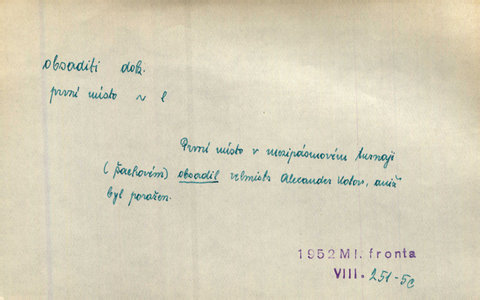 obsaditi dok.
první místo v l
První místo v mezipásmovém turnaji
(šachovém) obsadil velmistr Alexander Kotov, aniž
byl poražen.
1952 Ml. fronta
VIII. 251-5c